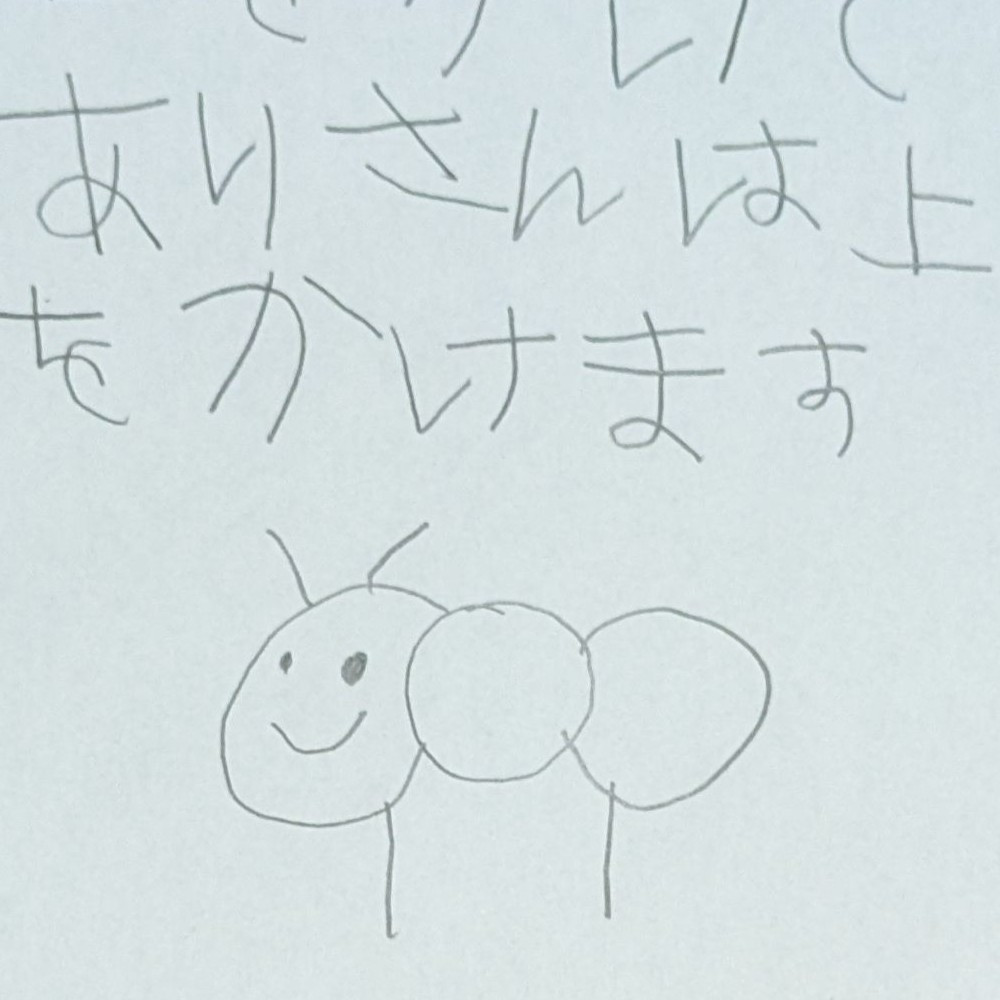 ありさんは上
をかけます